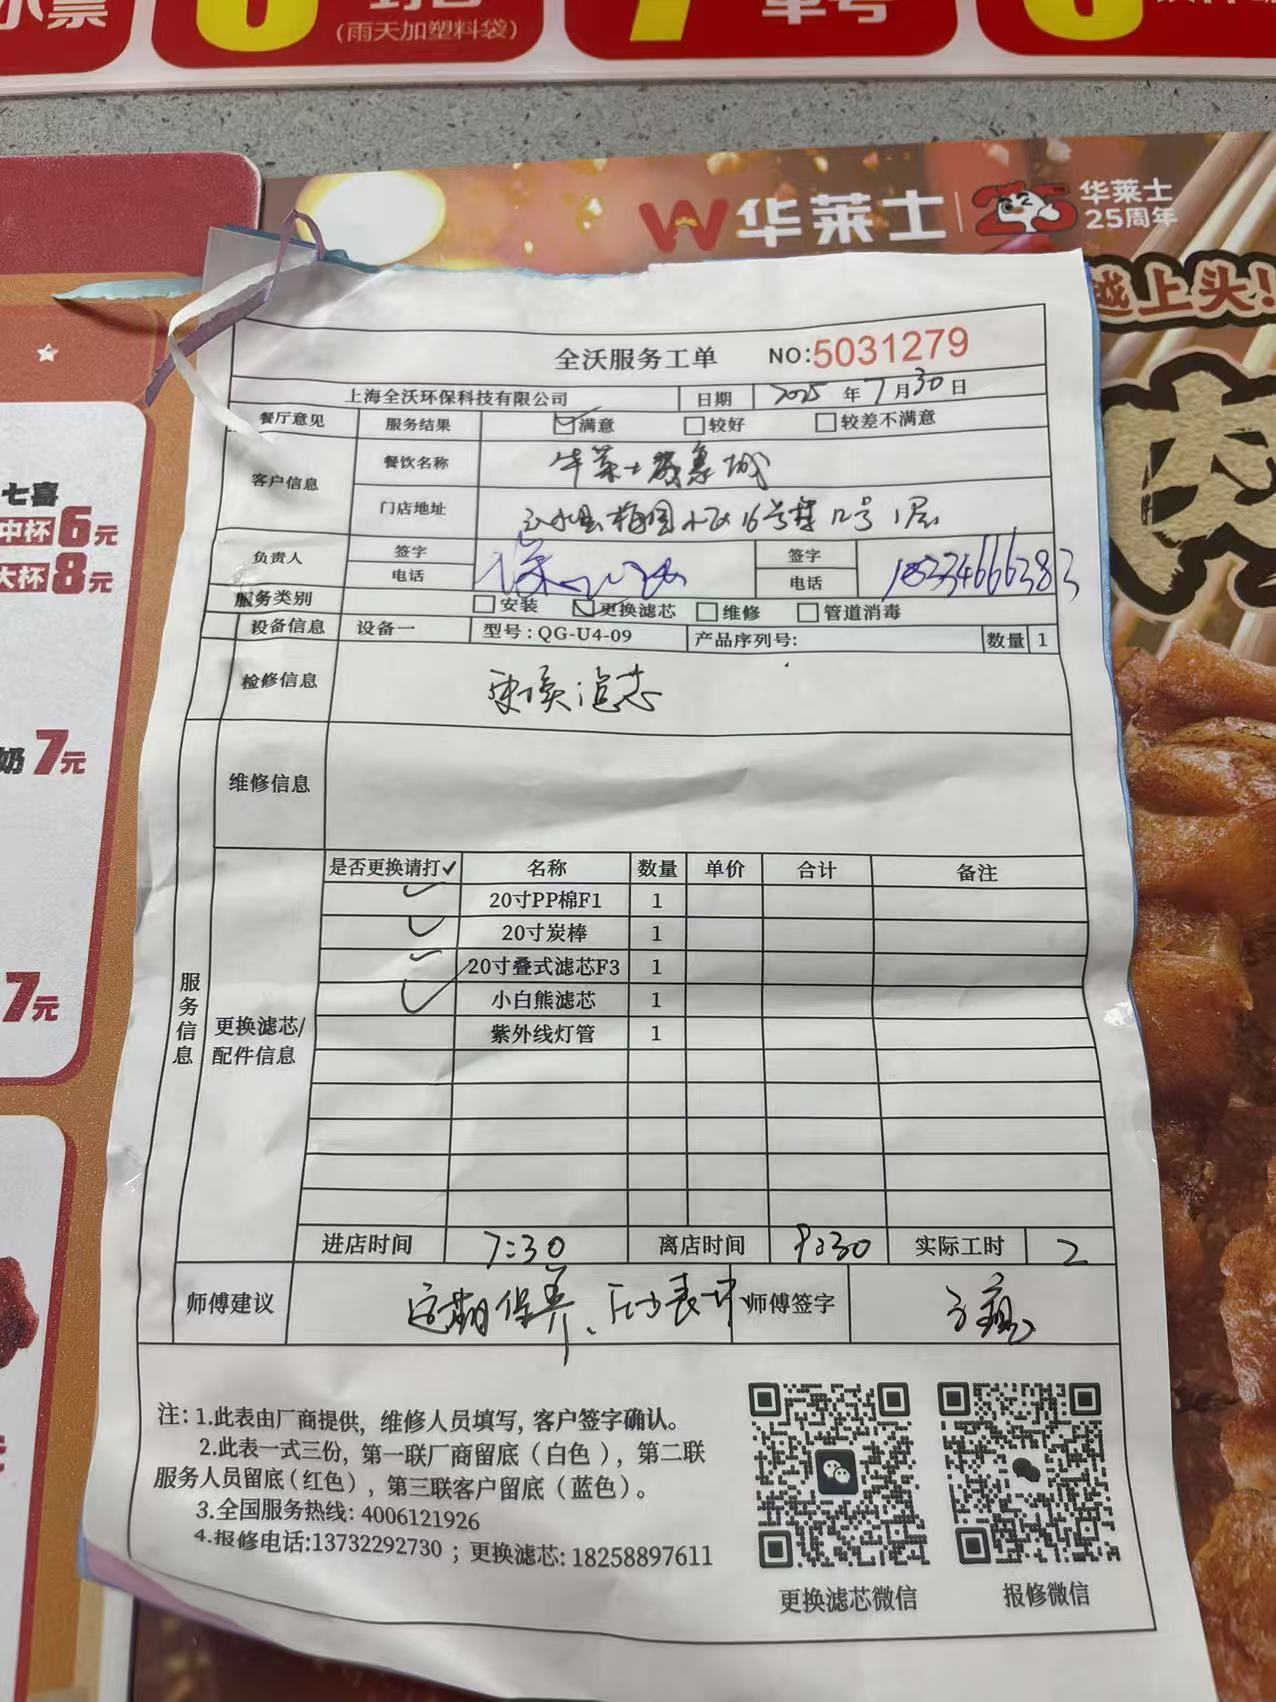 小票
封口
(雨天加塑料袋)
单号
华莱士
25
华莱士
25周年
越上头!
七喜
中杯6元
大杯8元
奶 7元
7元
全沃服务工单 NO:5031279
上海全沃环保科技有限公司 日期 2025 年 7 月 30 日
餐厅意见 服务结果 满意 较好 较差不满意
客户信息 餐饮名称 华莱士 城
门店地址 梅园小区16号楼12号1层
负责人 签字 签字
电话 电话
服务类别 安装 更换滤芯 维修 管道消毒
设备信息 设备一 型号:QG-U4-09 产品序列号: 数量 1
检修信息 更换滤芯
维修信息
服务信息
更换滤芯/
配件信息
是否更换请打✓ 名称 数量 单价 合计 备注
✓ 20寸PP棉F1 1
✓ 20寸炭棒 1
✓ 20寸叠式滤芯F3 1
✓ 小白熊滤芯 1
紫外线灯管 1
进店时间 7:30 离店时间 9:30 实际工时 2
师傅建议 定期保养、压力表 师傅签字
注: 1.此表由厂商提供, 维修人员填写, 客户签字确认。
2.此表一式三份, 第一联厂商留底(白色), 第二联
服务人员留底(红色), 第三联客户留底(蓝色)。
3.全国服务热线: 4006121926
4.报修电话:13732292730 ; 更换滤芯: 18258897611
更换滤芯微信
报修微信